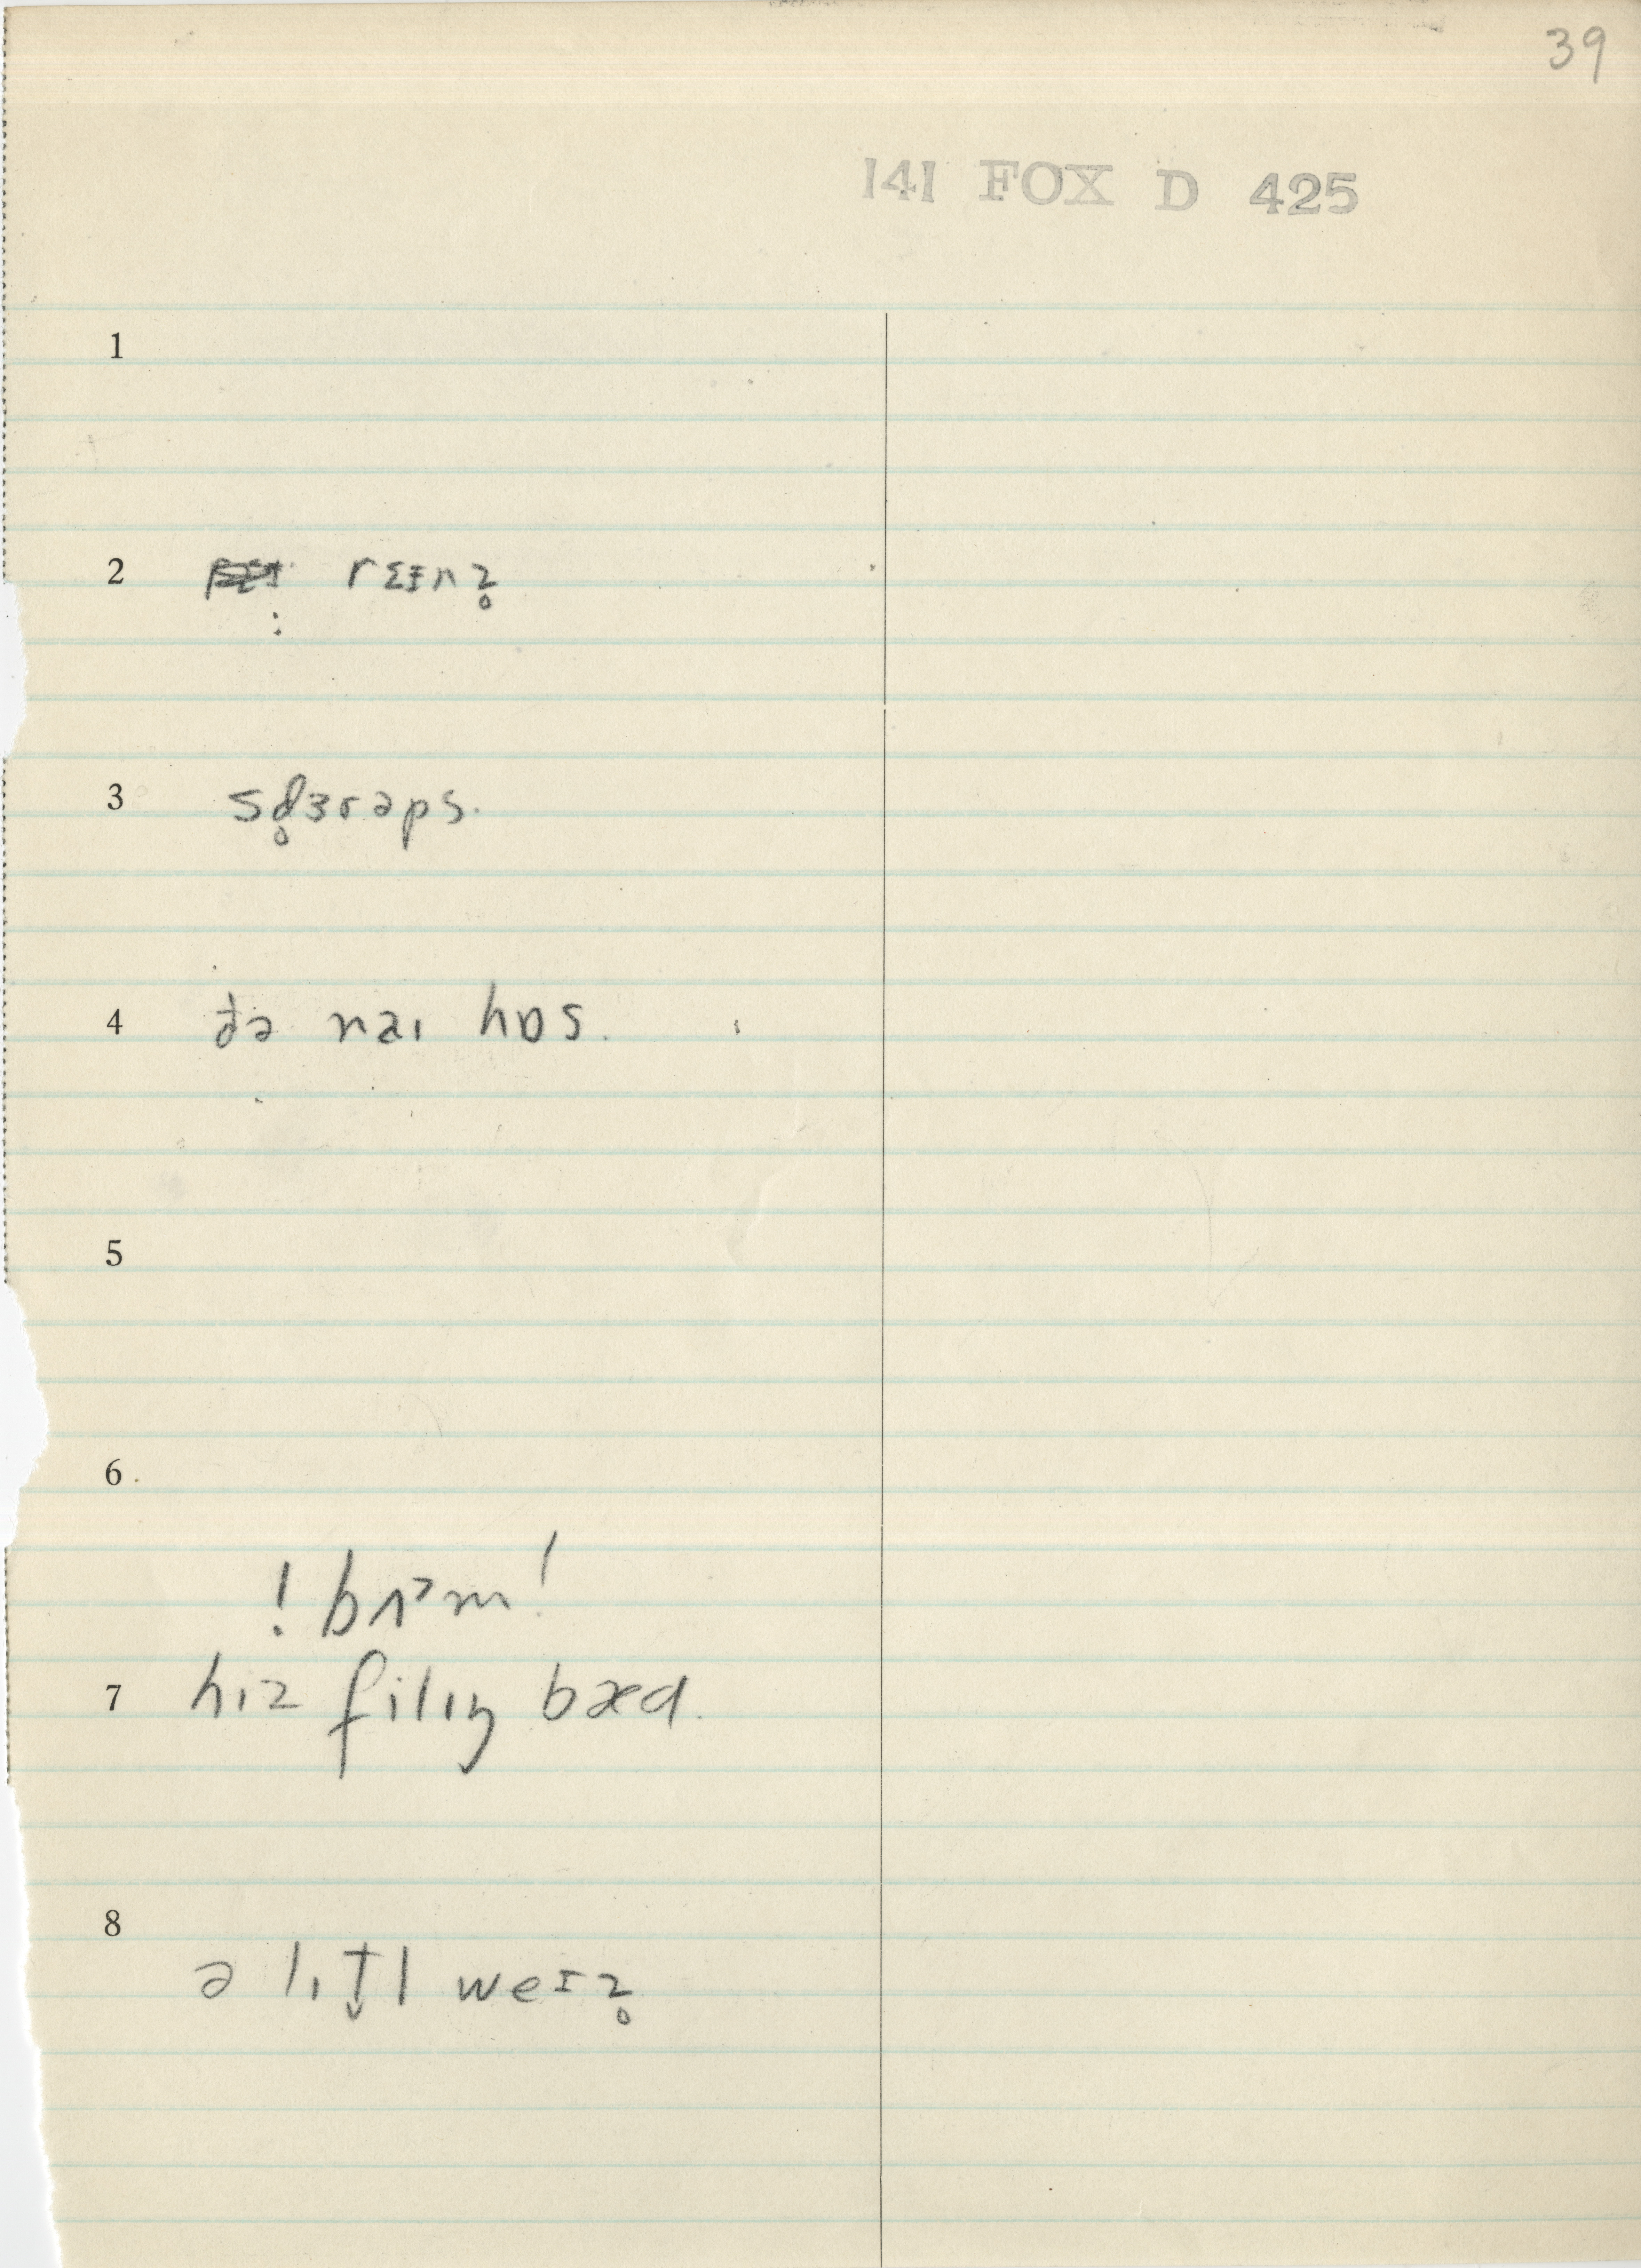 39
141 FOX D 425
1
2 rɛɨnz̥
3 sd̥ɜrəps.
4 ðə nəɪ hɒs.
5
6
! bɹʌm !
7 hɪz filɪŋ bæd.
8
ə lɪt̬l weɪz̥